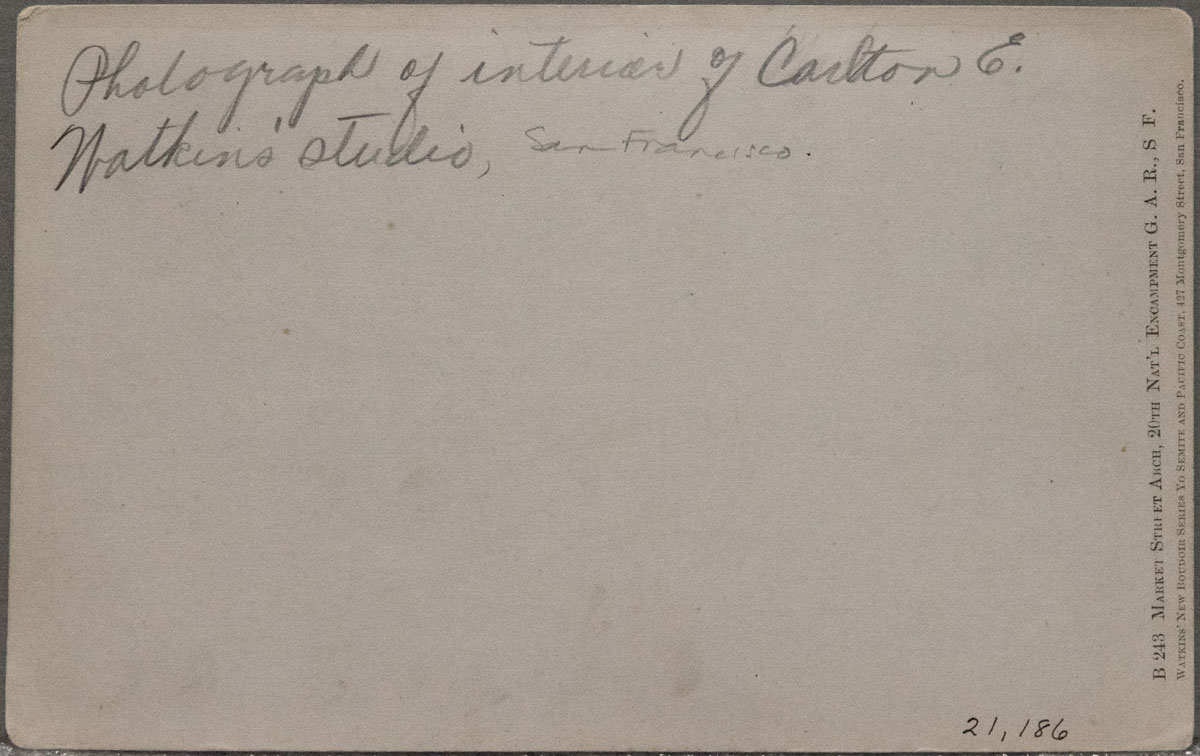 Photograph of interior of Carlton E.
Watkin's studio, San Francisco.
B 243 MARKET STREET ARCH, 20TH NAT'L ENCAMPMENT G. A. R., S F.
WATKINS' NEW BOUDOIR SERIES YO SEMITE AND PACIFIC COAST, 427 Montgomery Street, San Francisco.
21,186